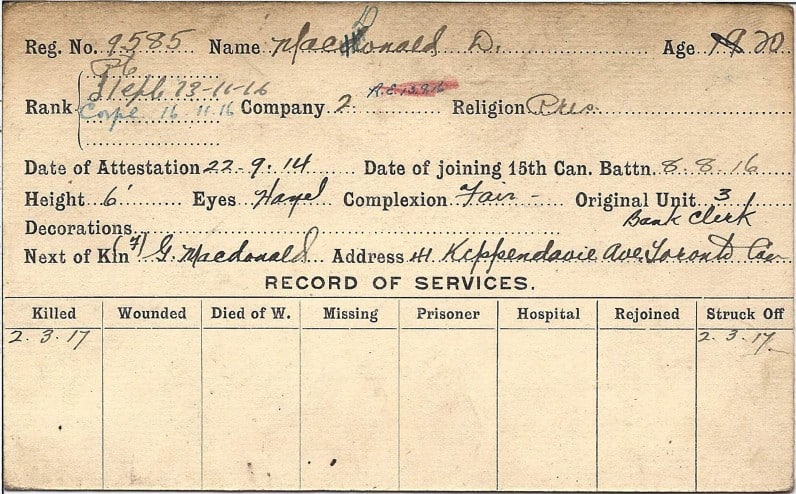 Reg. No. 9585 Name MacDonald D. Age 20
Pte
Rank 13-11-16
Corpl 16 11 16 Company 2. A.E. 13.9.16 Religion Pres.
Date of Attestation 22-9.14 Date of joining 15th Can. Battn. 8 8 16
Height 6' Eyes Hazel Complexion Fair - Original Unit 3
Decorations Bank Clerk
Next of Kin (f) G. Macdonald Address 41 Keppendavie Ave. Toronto Can
RECORD OF SERVICES.
Killed Wounded Died of W. Missing Prisoner Hospital Rejoined Struck Off
2.3.17 2.3.17